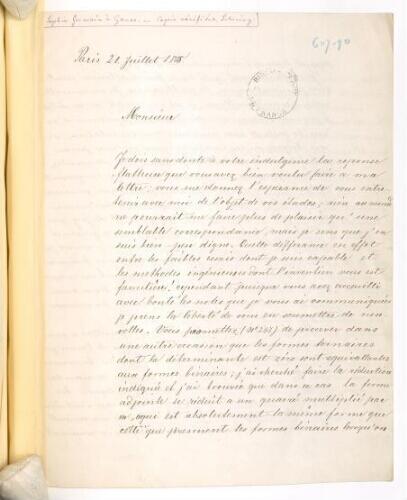 Sophie Germain à Gauss. — Copie vérifiée. Schering
607-90
Paris 21 Juillet 1805
Monsieur
Je dois sans doute à votre indulgence la réponse
flatteuse que vous avez bien voulu faire à ma
lettre; vous me donnez l'espérance de vous entre-
tenir avec moi de l'objet de vos études; rien au mond
ne pourrait me faire plus de plaisir qu'une
semblable correspondance, mais je sens que j'en
suis bien peu digne. Quelle différence en effet
entre les faibles essais dont je suis capable et
les méthodes ingénieuses dont l'invention vous est
familière! Cependant puisque vous avez accueilli
avec bonté les notes que je vous ai communiquées
je prens la liberté de vous en soumettre de nou-
velles. Vous promettez (No 267) de prouver dans
une autre occasion que les formes ternaires
dont la déterminante est zéro sont équivalentes
aux formes binaires; j'ai cherché faire la réduction
indiquée et j'ai trouvé que dans ce cas la forme
adjointe se réduit a un quarré multiplié par
m, qui est absolument la même forme que
celle que prennent les formes binaires lorsqu'on